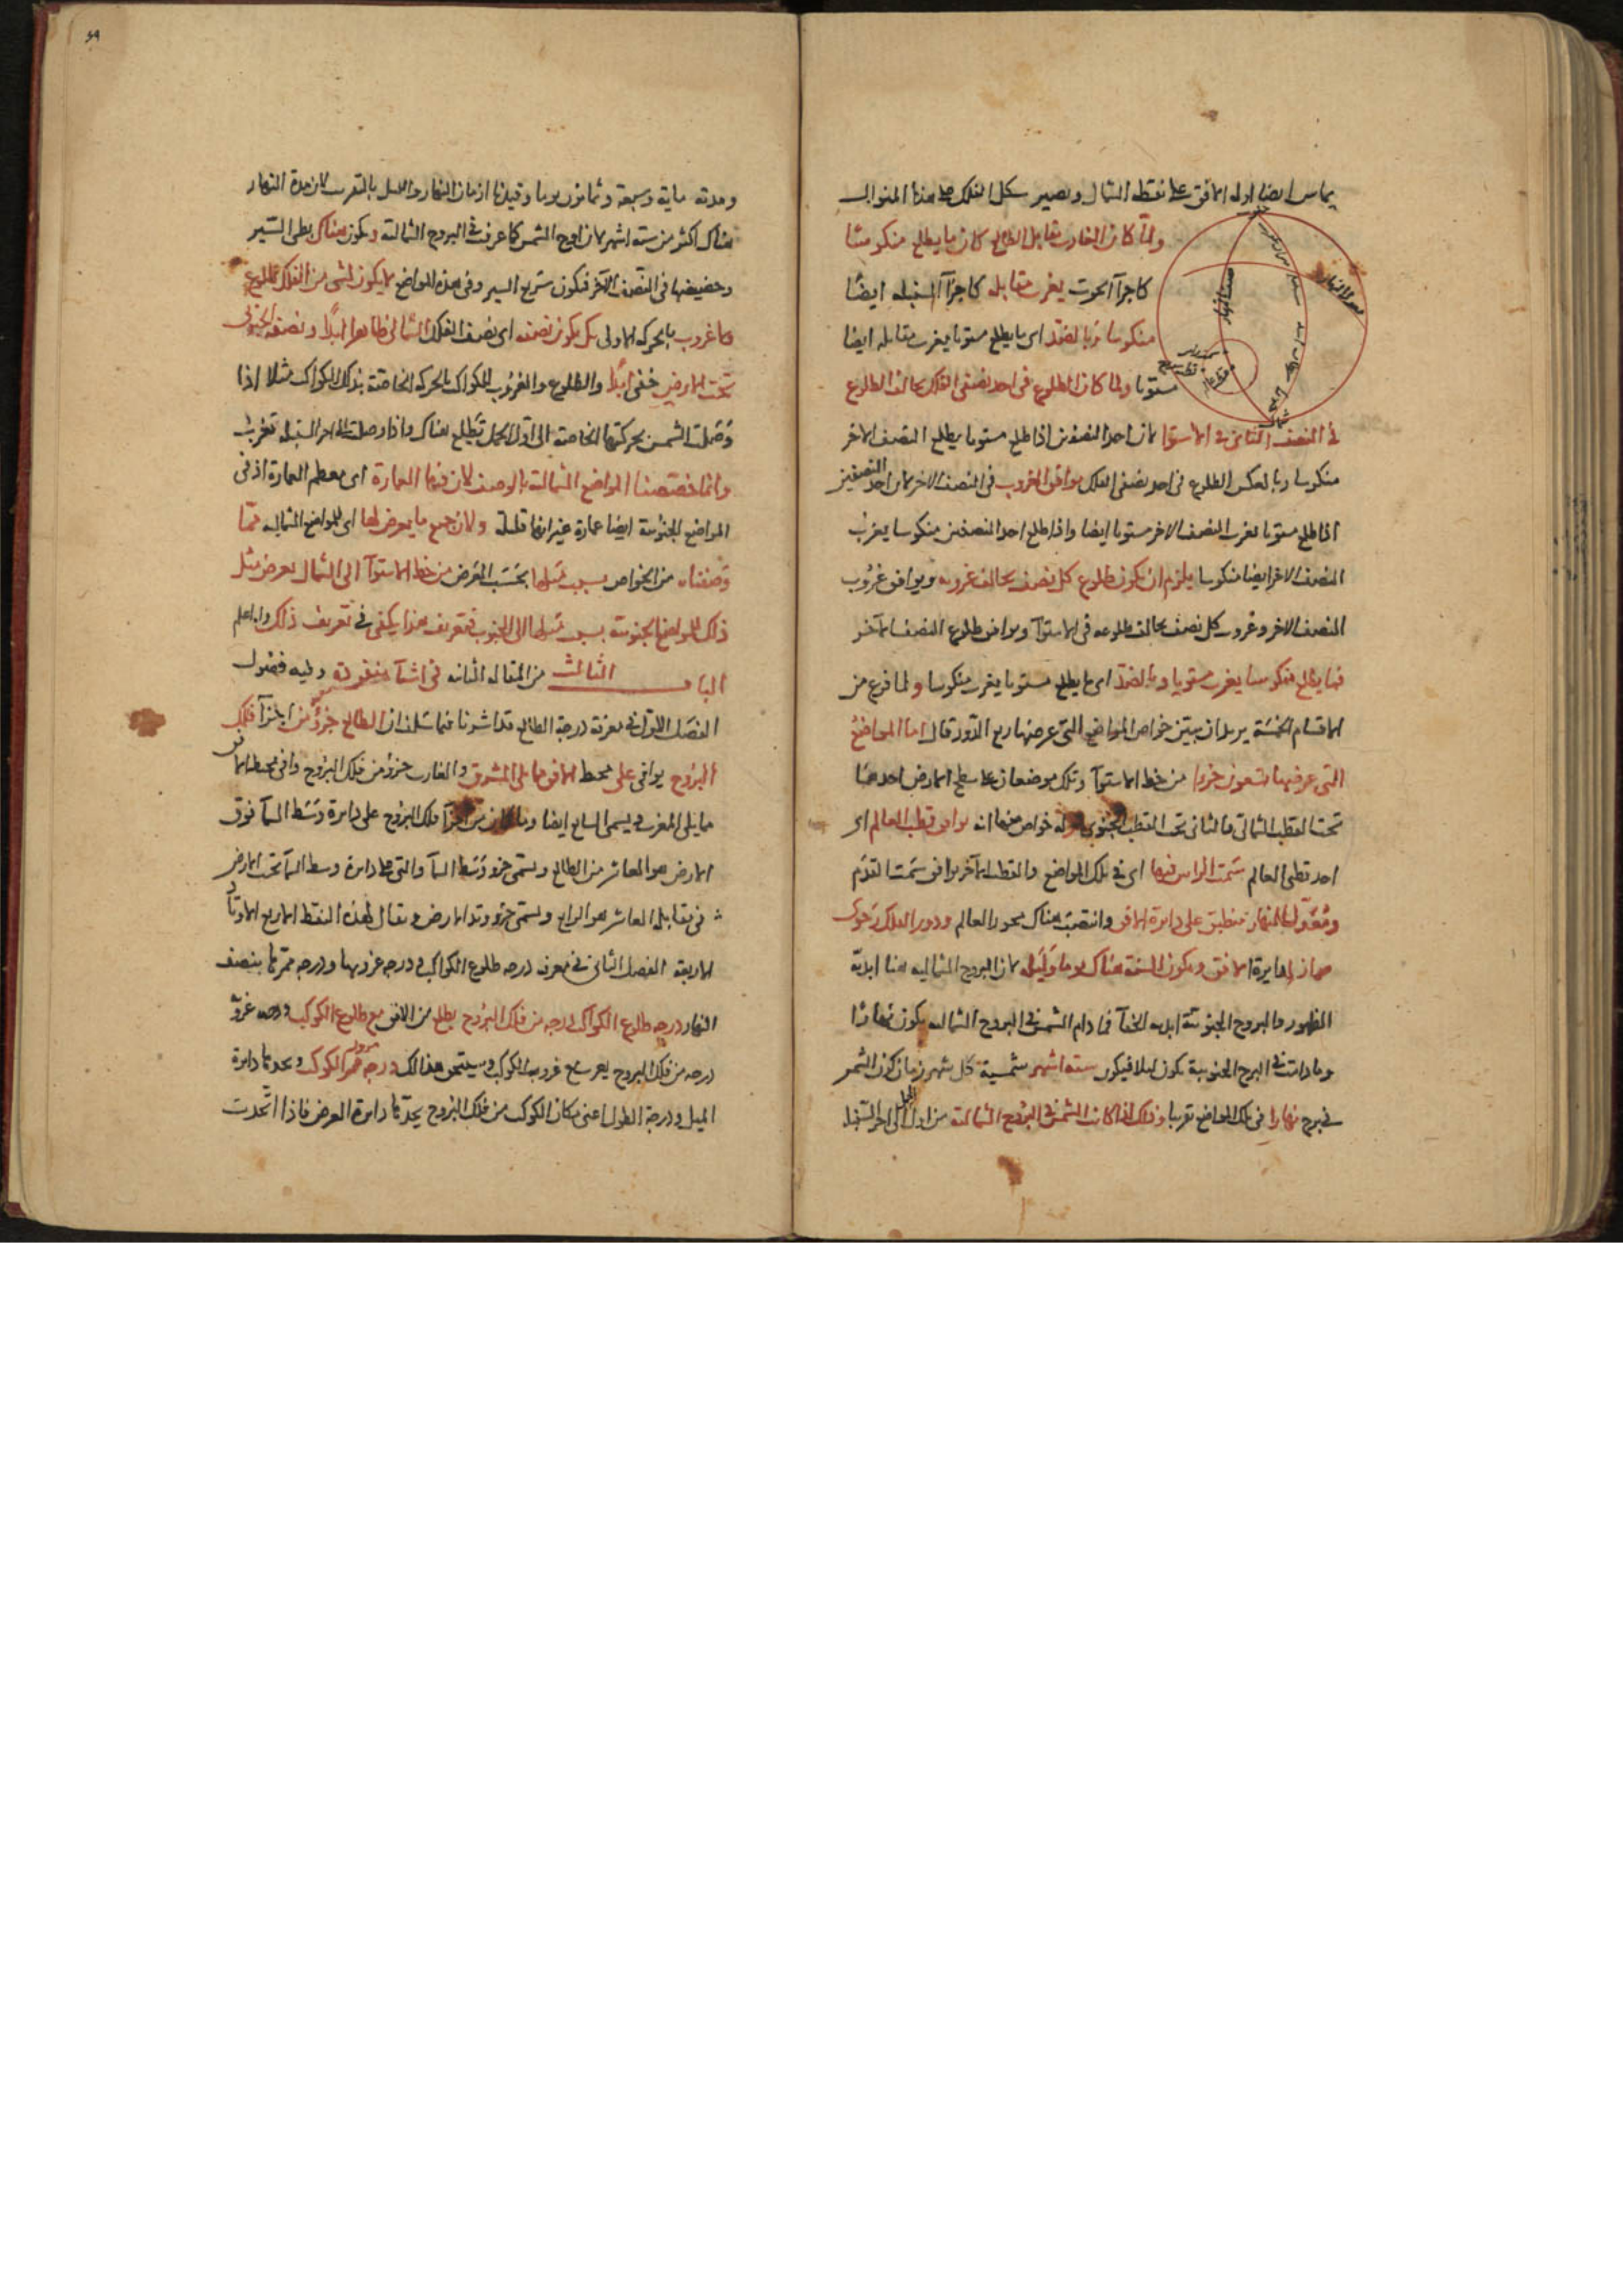 يماس ايضا اوله الافق على نقطة الشمال ويصير شكل الفلك على هذا المنوال
ولما كان الغارب مقابل الطالع كان ما يطلع منكوسا
كاجزآ الحوت يغرب مقابله كاجزآ السنبله ايضا
منكوسا وبالضد اى ما يطلع مستويا يغرب مقابله ايضا
مستويا ولما كان الطلوع فى احد نصفى الفلك يخالف الطلوع
فى النصف الثانى فى الاستوا لان احد النصفين اذا طلع مستويا يطلع النصف الاخر
منكوسا وبالعكس الطلوع فى احد نصفى الفلك يوافق الغروب فى النصف الاخر لان احد النصفين
اذا طلع مستويا يغرب النصف الاخر مستويا ايضا واذا طلع احد النصفين منكوسا يغرب
النصف الاخر ايضا منكوسا يلزم ان يكون طلوع كل نصف يخالف غروبه ويوافق غروب
النصف الاخر وغروب كل نصف يخالف طلوعه فى الاستوآ ويوافق طلوع النصف الآخر
فما يطلع منكوسا يغرب مستويا وبالضد اى ما يطلع مستويا يغرب منكوسا ولما فرغ من
الاقسام الخمسة يريد ان يبين خواص المواضع التى عرضها ربع الدور قال اما المواضع
التى عرضها تسعون جزوا من خط الاستوآ وتلك موضعان على سطح الارض احدهما
تحت القطب الشمالى والثانى تحت القطب الجنوبى وله خواص منها انه يوافق قطب العالم اى
احد قطبى العالم سمت الراس فيها اى فى تلك المواضع والقطب الآخر يوافق سمت القدم
ومعدل النهار منطبق على دايرة الافق وانتصب هناك محور العالم ودور الفلك رحوى
مواز لدايرة الافق ويكون السنة هناك يوما وليلة لان البروج الشماليه هنا ابدية
الظهور والبروج الجنوبية ابدية الخفآ فما دام الشمس فى البروج الشماليه يكون نهارا
وما دامت فى البرج الجنوبية يكون ليلا فيكون ستة اشهر شمسية كل شهر زمان كون الشمس
فى برج نهارا فى تلك المواضع تقريبا وذلك اذا كانت الشمس فى البروج الشمالية من اول الحمل الى اخر السنبلة
معدل النهار
نصف النهار
شمال
٤٩
ومدته ماية وسبعة وثمانون يوما وقيدنا ازمان النهار والليل بالتقريب لان مدة النهار
هناك اكثر من ستة اشهر لان اوج الشمس كما عرف فى البروج الشمالية ويكون هناك بطى السير
وحضيضها فى النصف الآخر فيكون سريع السير وفى هذه المواضع لا يكون لشى من الفلك طلوع
ولا غروب بالحركة الاولى بل يكون نصفه اى نصف الفلك الشمالى ظاهرا ابدا ونصفه الجنوبى
تحت الارض خفى ابدا والطلوع والغروب للكواكب بالحركة الخاصة بذلك الكواكب مثلا اذا
وصلت الشمس بحركتها الخاصة الى اول الحمل تطلع هناك واذا وصلت الى اخر السنبله تغرب
وانما خصصنا المواضع الشمالية بالوصف لان فيها العمارة اى معظم العمارة اذ فى
المواضع الجنوبية ايضا عمارة غير انها قليلة ولان جميع ما يعرض لها اى للمواضع الشماليه مما
وصفناه من الخواص بسبب ميلها بحسب العرض من خط الاستوآ الى الشمال يعرض مثل
ذلك للمواضع الجنوبية بسبب ميلها الى الجنوب فتعريف هذا يكفى فى تعريف ذلك والله اعلم
الباب الثالث من المقالة الثانيه فى اشيآ متفرقة وفيه فصول
الفصل الاول فى معرفة درجة الطالع قد اشرنا فيما سلف ان الطالع جزؤ من اجزآ فلك
البروج يوافى على محيط الافق مما يلى المشرق والغارب جزؤ من فلك البروج وافى محيط الافق
مما يلى المغرب ويسمى السابع ايضا وما كان من اجزآ فلك البروج على دايرة وسط السمآ فوق
الارض هو العاشر من الطالع ويسمى جزو وسط السمآ والتى على دايرة وسط السمآ تحت الارض
فى مقابلة العاشر هو الرابع ويسمى جزو وتد الارض ويقال لهذه النقط الاربع الاوتاد
الاربعة الفصل الثانى فى معرفة درجه طلوع الكواكب ودرجه غروبها ودرجه ممرها بنصف
النهار درجه طلوع الكواكب درجه من فلك البروج يطلع من الافق مع طلوع الكوكب ودرجه غروبه
درجه من فلك البروج يغرب مع غروب الكوكب درجه ممر الكوكب دايرة
الميل ودرجة الطول اعنى مكان الكوكب من فلك البروج يحدها دايرة العرض فاذا اتحدت